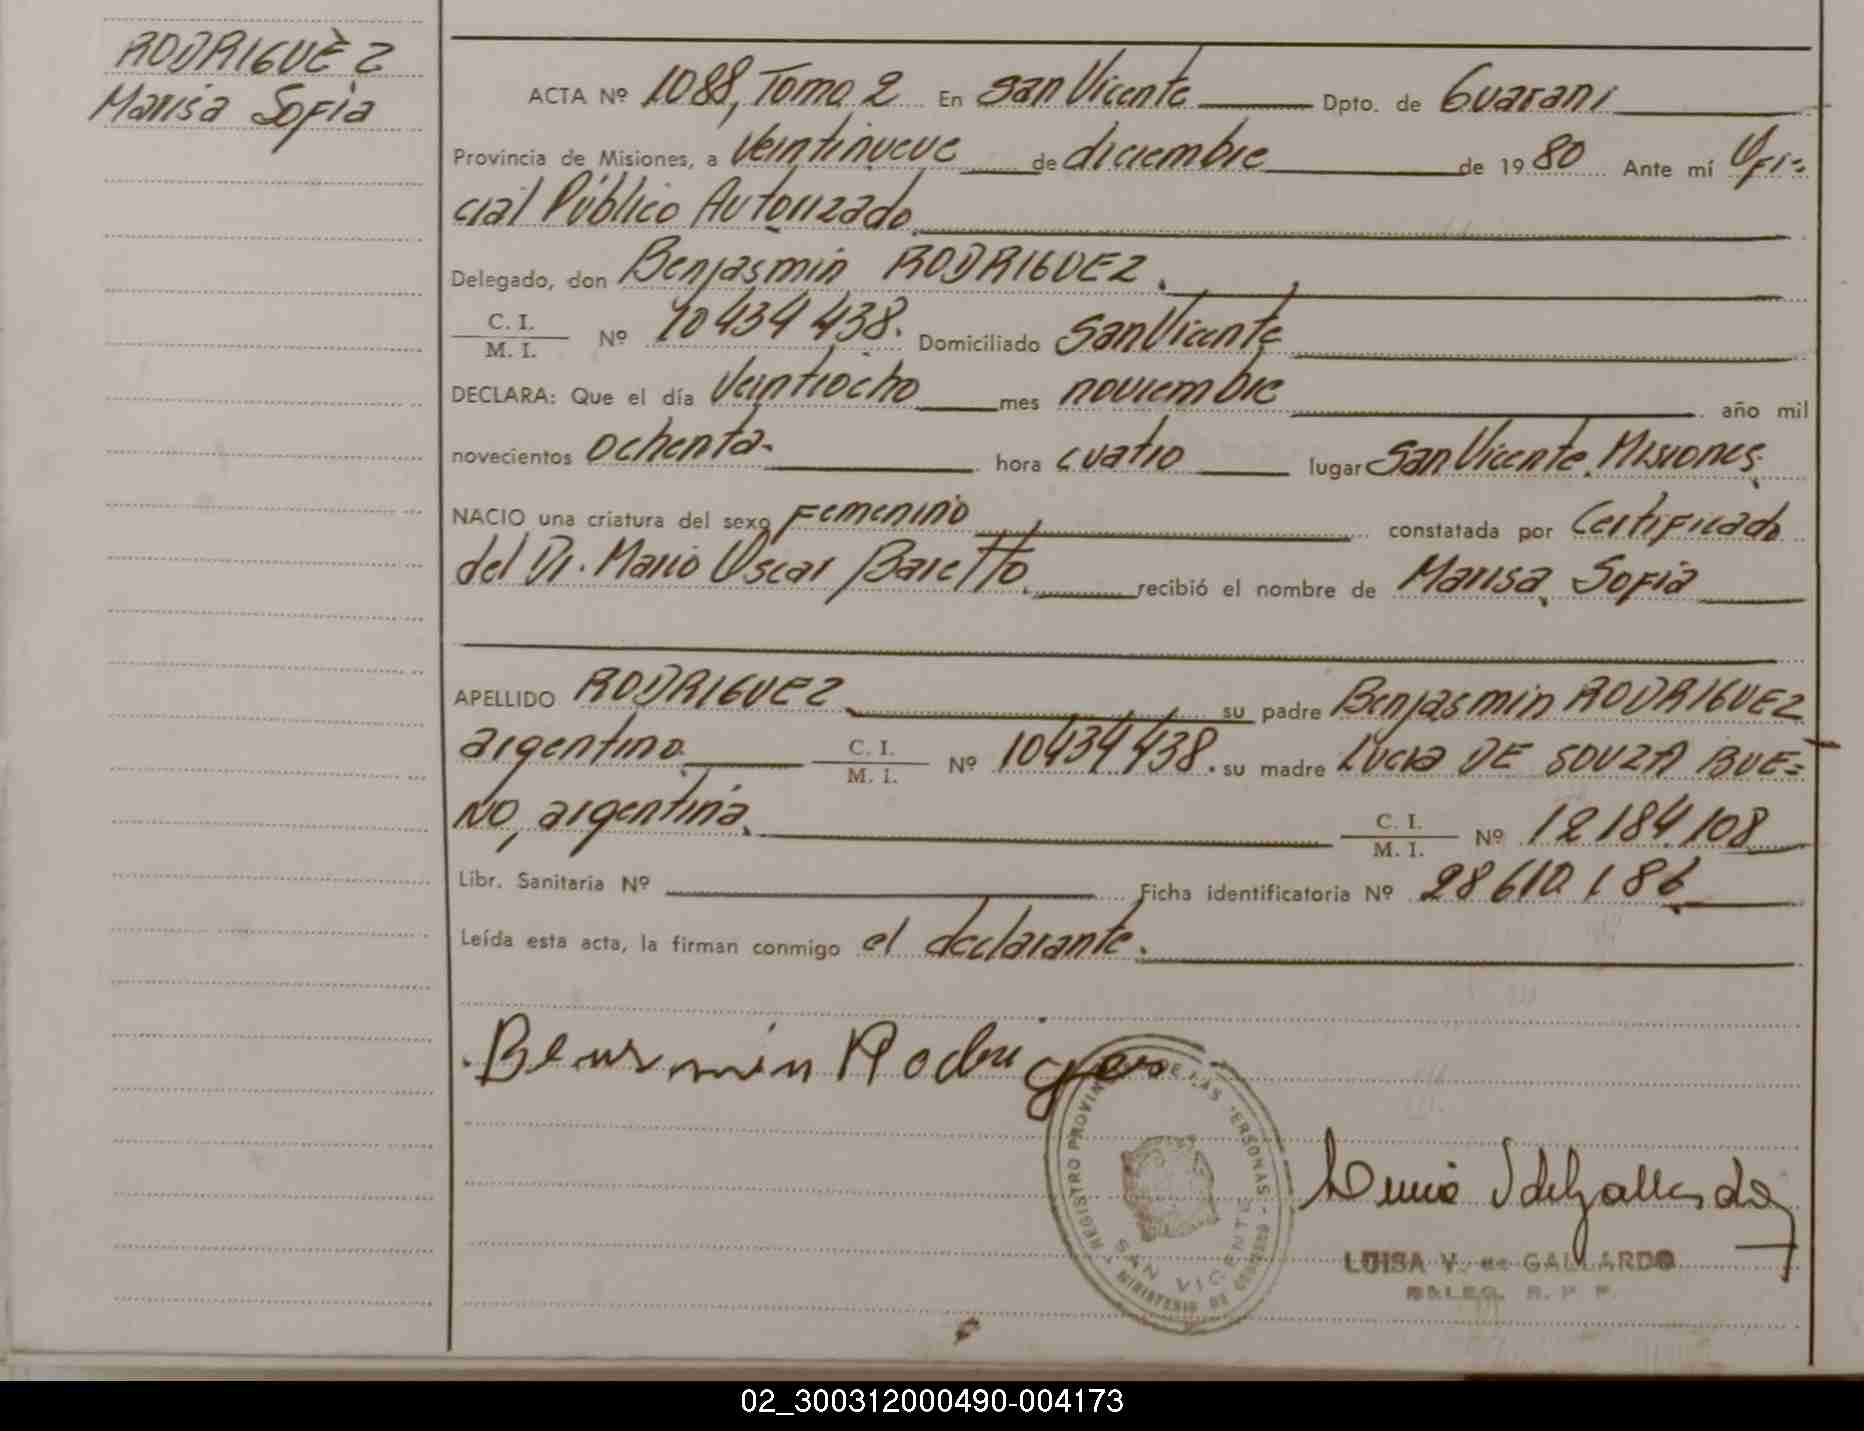 RODRIGUÈZ
Marisa Sofia
ACTA Nº 1088, Tomo 2 En San Vicente Dpto. de Guarani
Provincia de Misiones, a Veintinueve de diciembre de 1980 Ante mí Ofi=
cial Público Autorizado.
Delegado, don Benjasmin RODRIGUEZ.
C. I.
M. I.
Nº 10434438. Domiciliado San Vicente
DECLARA: Que el día Veintiocho mes noviembre año mil
novecientos ochenta- hora cuatro lugar San Vicente, Misiones,
NACIO una criatura del sexo Femenino constatada por Certificado
del Dr. Mario Oscar Baretto. recibió el nombre de Marisa Sofia
APELLIDO RODRIGUEZ su padre Benjasmin RODRIGUEZ
argentino C. I.
M. I. Nº 10434438. su madre Lucia DE SOUZA BUE=
NO, argentina, C. I.
M. I. Nº 12184.108
Libr. Sanitaria Nº Ficha identificatoria Nº 28610.186
Leída esta acta, la firman conmigo el declarante.
Rodriguez
REGISTRO PROVIN DE LAS PERSONAS - MINISTERIO DE GOBIERNO
SAN VICENTE
LUISA V. de GALLARDO
DELEG. R. P. P.
02_300312000490-004173